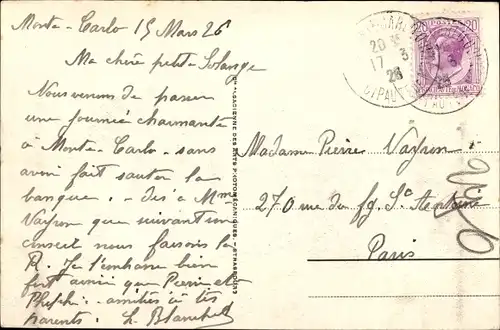 Monte-Carlo 15 Mars 26
Ma chère petite Solange
Nous venons de passer
une journée charmante
à Monte-Carlo - sans
avoir fait sauter la
banque. - dis à Mme
Vayron que suivant son
conseil nous faisons la
R. Je t'embrasse bien
fort ainsi que Pierre et
amitiés à tes
parents. L. Blanchet
Madame Pierre Vayron
270 rue du fg. St Antoine
Paris